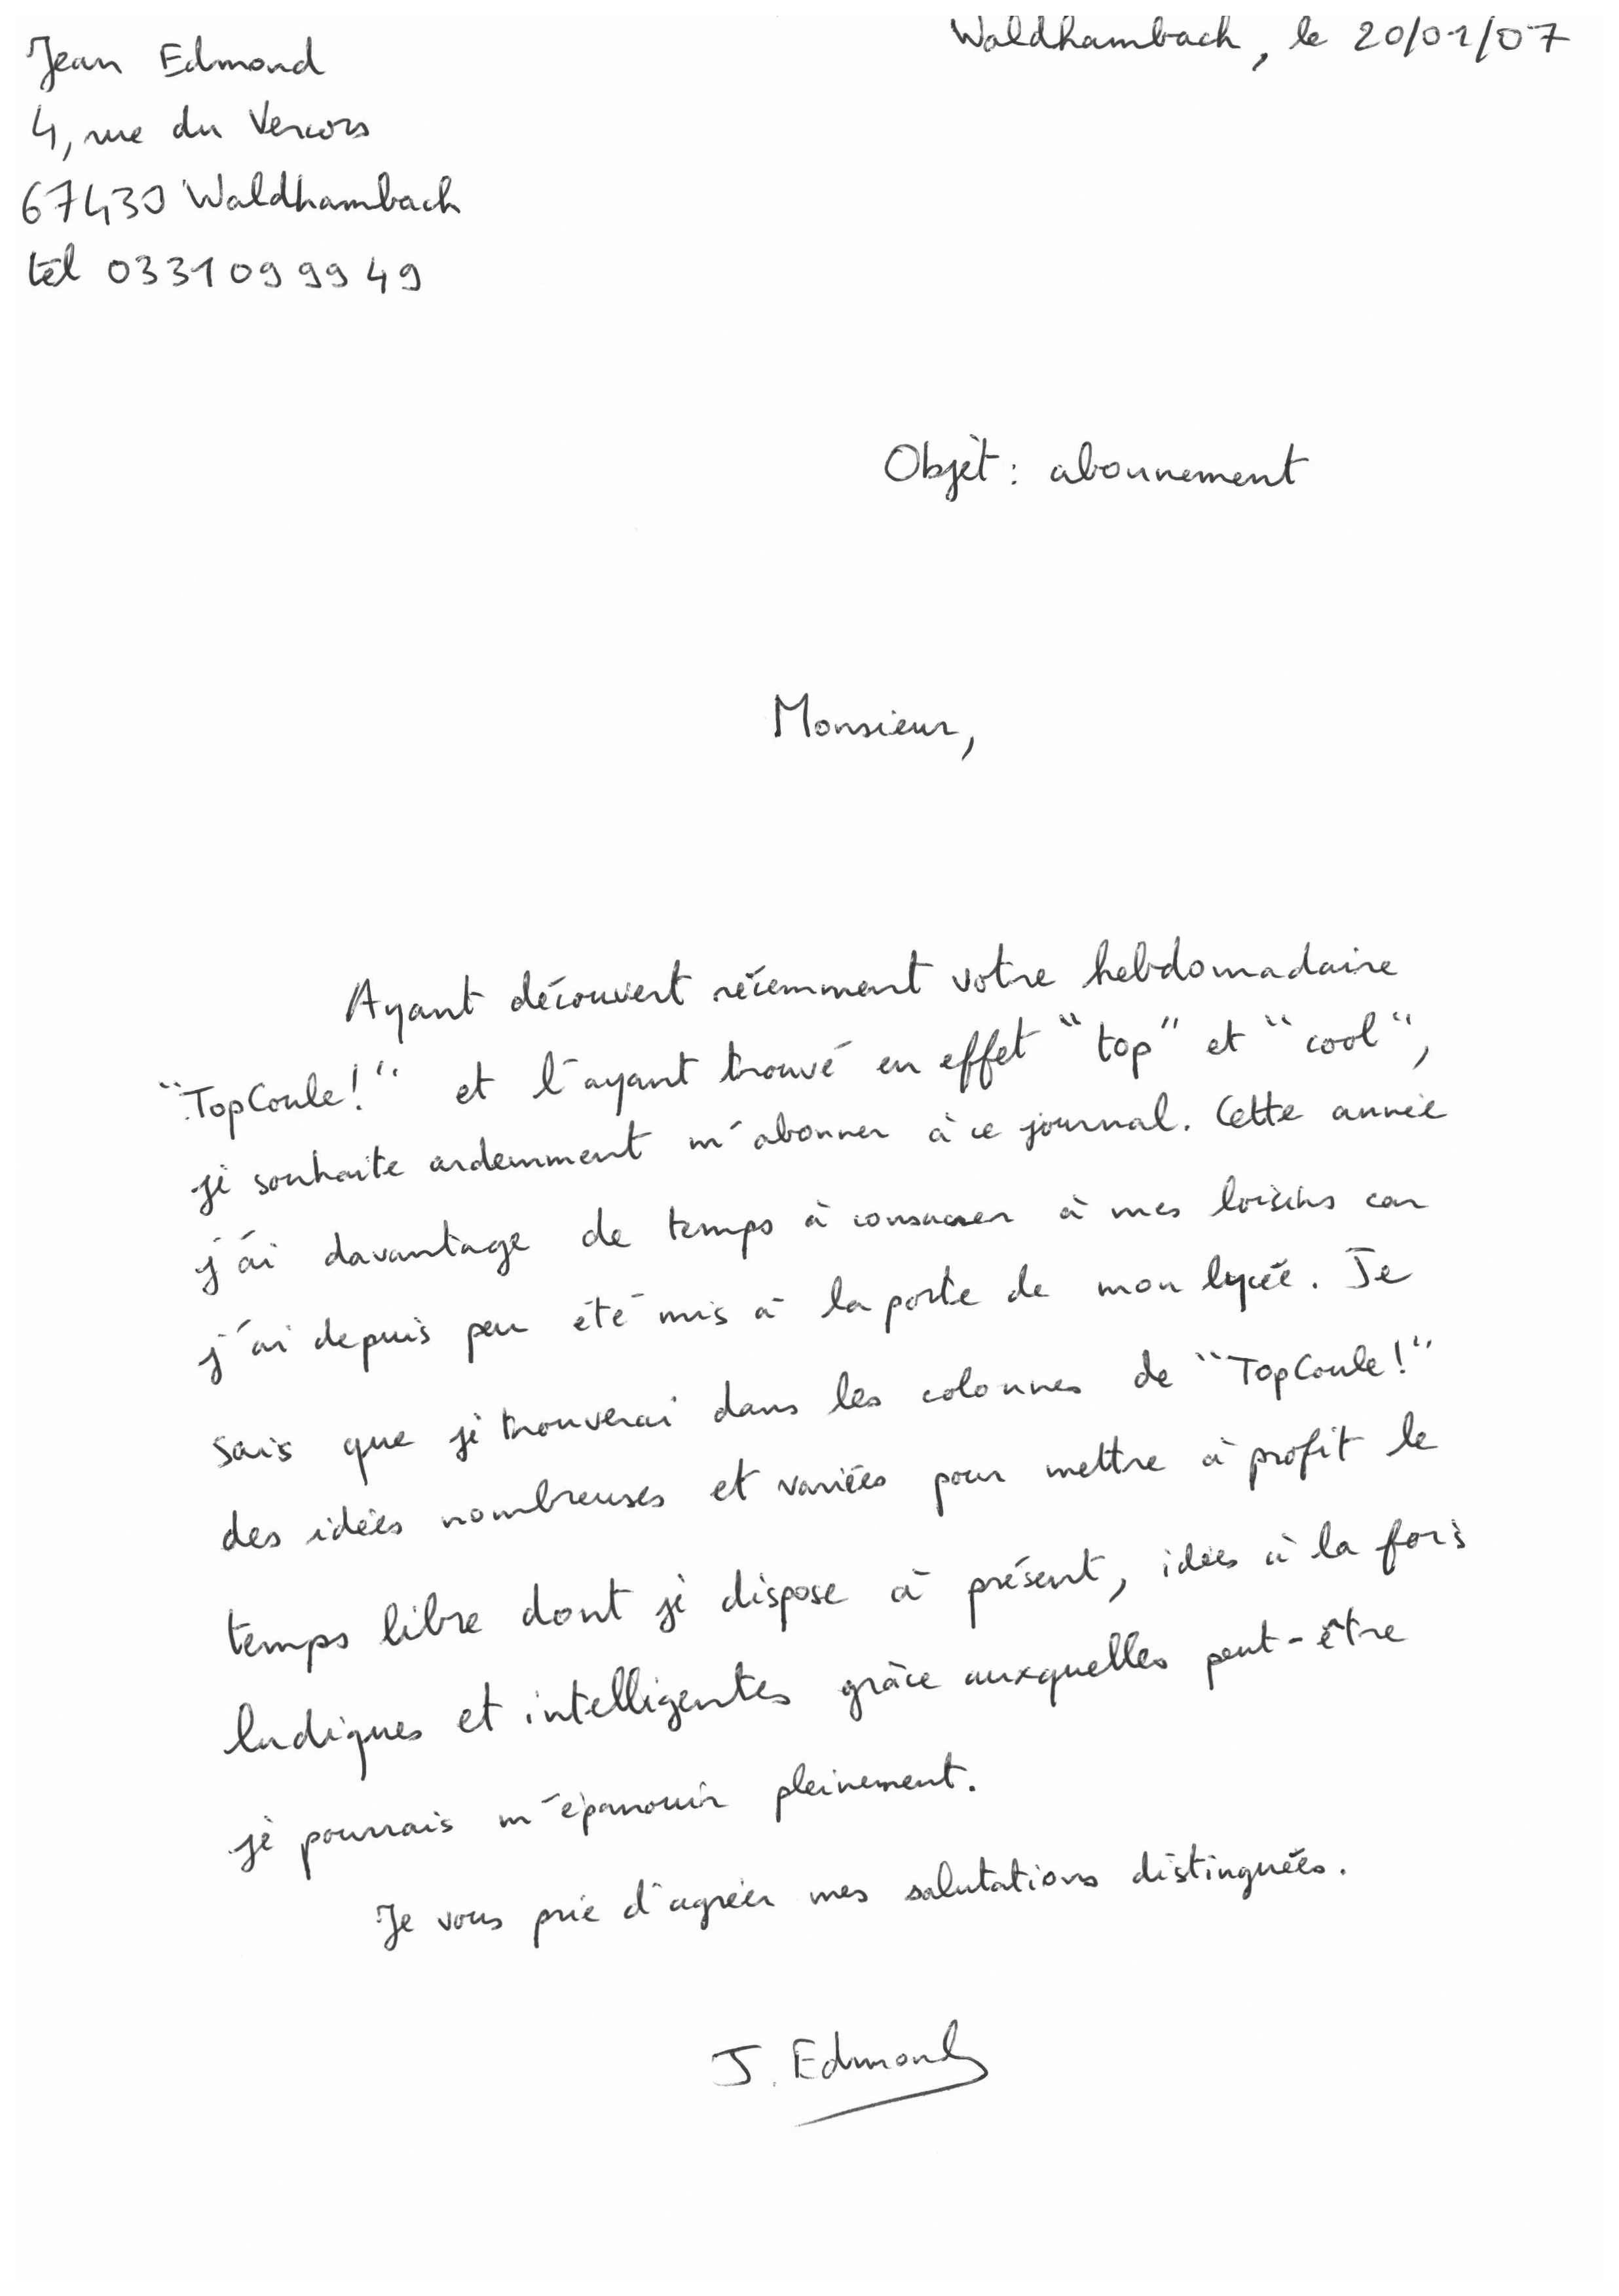 Jean Edmond
4, rue du Vercors
67430 Waldhambach
tél 0331099949
Waldhambach, le 20/01/07
Objet : abonnement
Monsieur,
Ayant découvert récemment votre hebdomadaire
"TopCoule!" et l'ayant trouvé en effet "top" et "cool",
je souhaite ardemment m'abonner à ce journal. Cette année
j'ai davantage de temps à consacrer à mes loisirs car
j'ai depuis peu été mis à la porte de mon lycée. Je
sais que je trouverai dans les colonnes de "TopCoule!"
des idées nombreuses et variées pour mettre à profit le
temps libre dont je dispose à présent, idées à la fois
ludiques et intelligentes grâce auxquelles peut-être
je pourrais m'épanouir pleinement.
Je vous prie d'agréer mes salutations distinguées.
J. Edmond